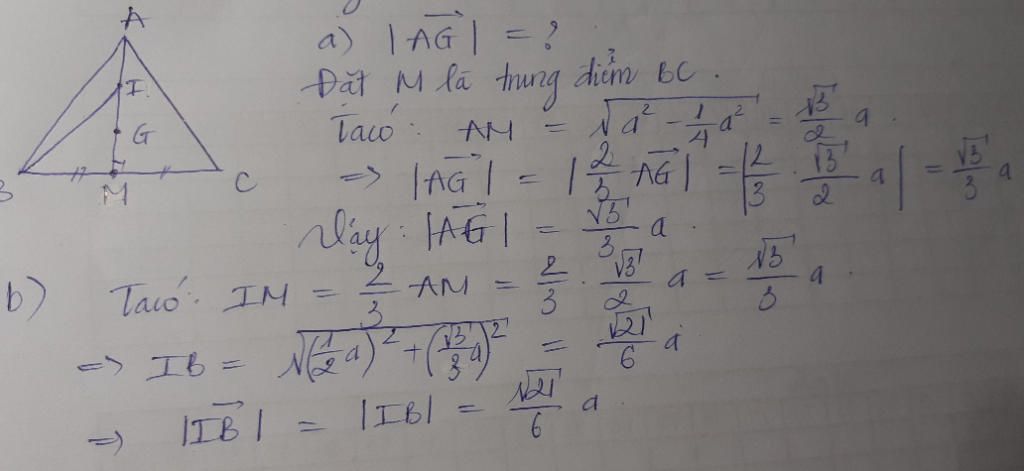 A
I
G
B
M
C
a) |\vec{AG}| = ?
Đặt M là trung điểm BC.
Ta có: AM = \sqrt{a^2 - \frac{1}{4}a^2} = \frac{\sqrt{3}}{2} a.
=> |\vec{AG}| = |\frac{2}{3} \vec{AG}| = |\frac{2}{3} \cdot \frac{\sqrt{3}}{2} a| = \frac{\sqrt{3}}{3} a
Vậy: |\vec{AG}| = \frac{\sqrt{3}}{3} a.
b) Ta có: IM = \frac{2}{3} AM = \frac{2}{3} \cdot \frac{\sqrt{3}}{2} a = \frac{\sqrt{3}}{3} a.
=> IB = \sqrt{(\frac{1}{2}a)^2 + (\frac{\sqrt{3}}{3}a)^2} = \frac{\sqrt{21}}{6} a
=> |\vec{IB}| = |IB| = \frac{\sqrt{21}}{6} a.